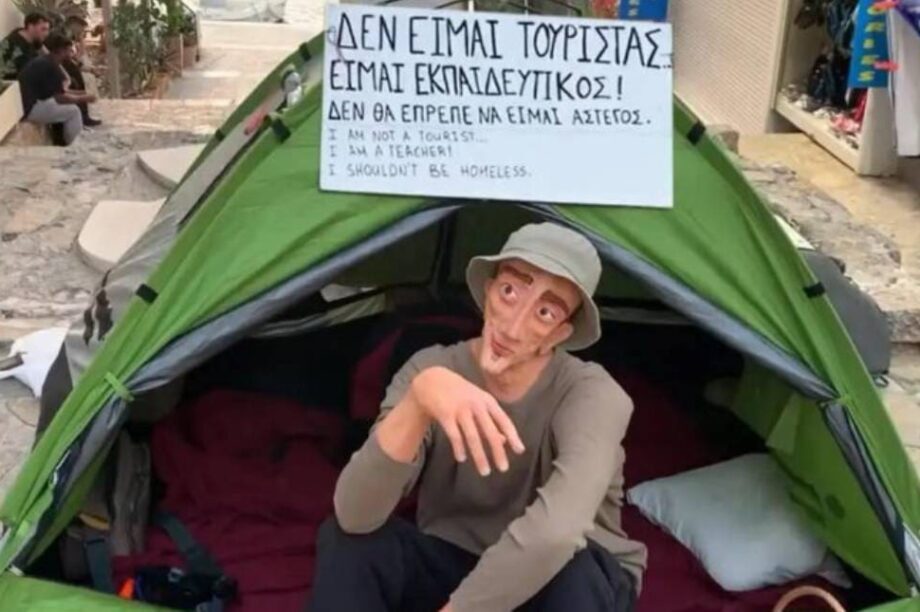 ΔΕΝ ΕΙΜΑΙ ΤΟΥΡΙΣΤΑΣ..
ΕΙΜΑΙ ΕΚΠΑΙΔΕΥΤΙΚΟΣ!
ΔΕΝ ΘΑ ΕΠΡΕΠΕ ΝΑ ΕΙΜΑΙ ΑΣΤΕΓΟΣ.
I AM NOT A TOURIST...
I AM A TEACHER!
I SHOULDN'T BE HOMELESS.